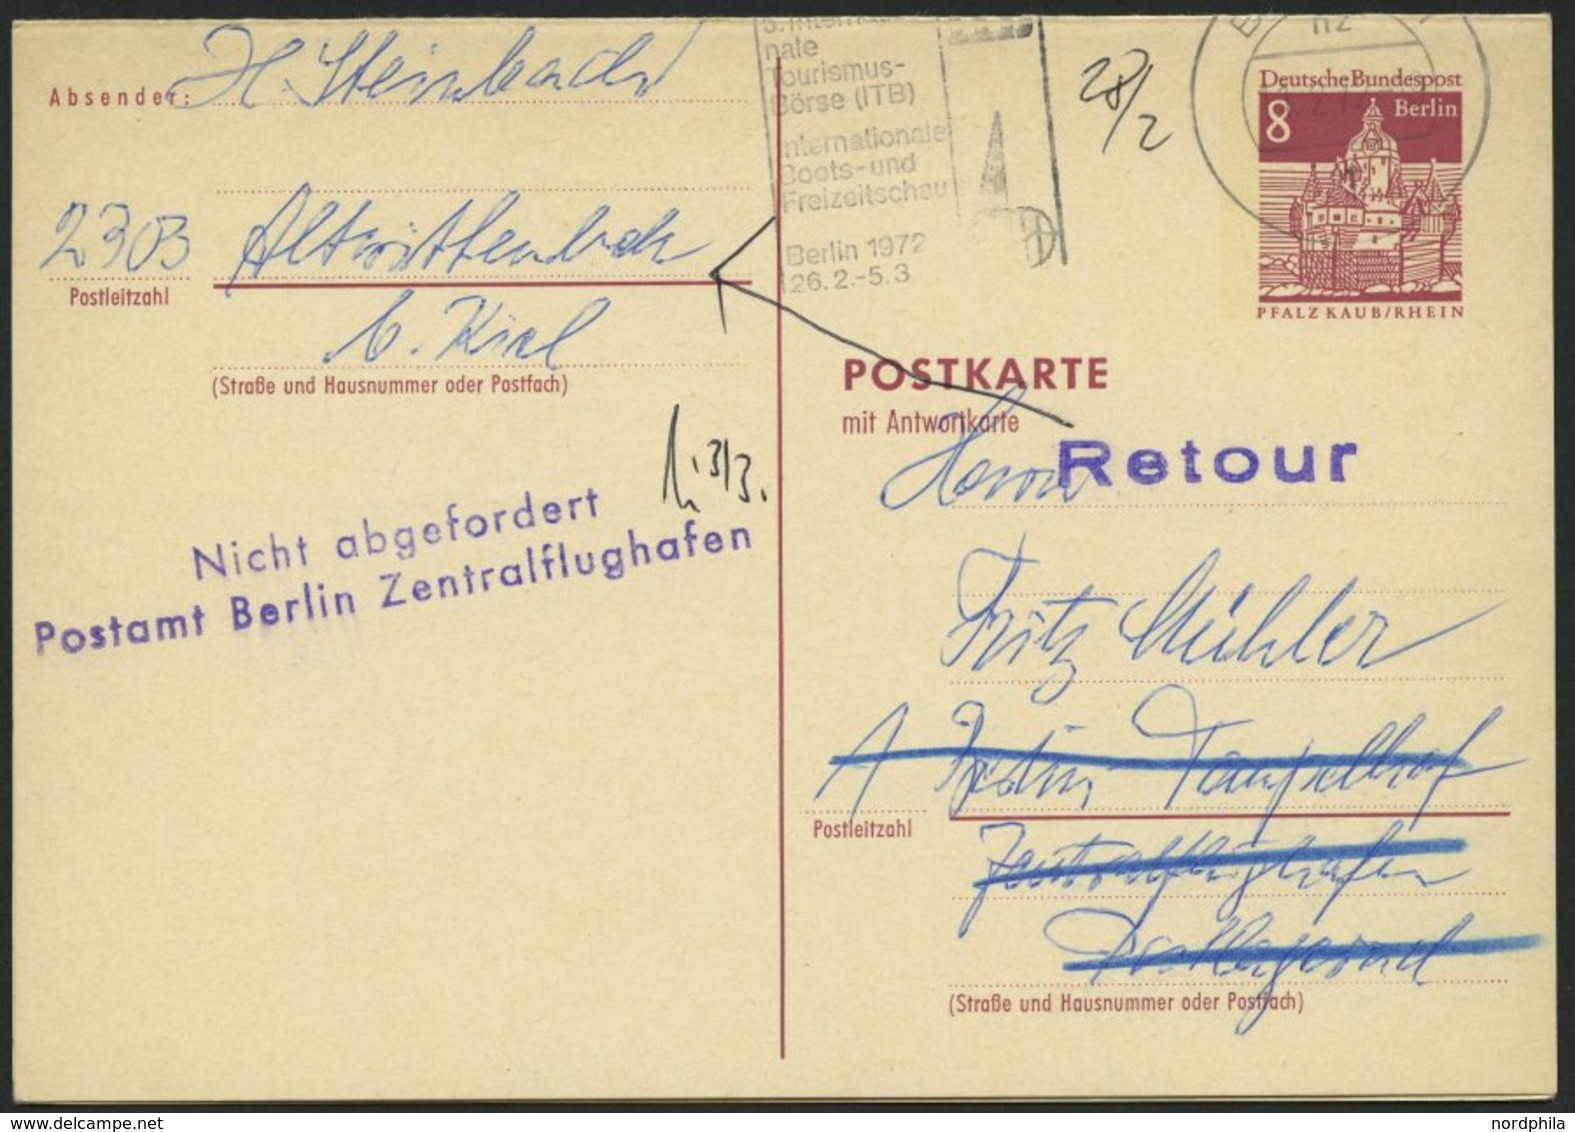 Absender: H. Steinbach
2303 Altwittenbek
Postleitzahl
b. Kiel
(Straße und Hausnummer oder Postfach)
h. 3/3.
Nicht abgefordert
Postamt Berlin Zentralflughafen
nale
Tourismus-
Börse (ITB)
Internationale
Boots- und
Freizeitschau
Berlin 1972
26.2.-5.3
28/2
Deutsche Bundespost
8 Berlin
PFALZ KAUB/RHEIN
POSTKARTE
mit Antwortkarte
Retour
Herrn
Fritz Mühler
1 Berlin Tempelhof
Postleitzahl
Zentralflughafen
Postlagernd
(Straße und Hausnummer oder Postfach)
nordphila